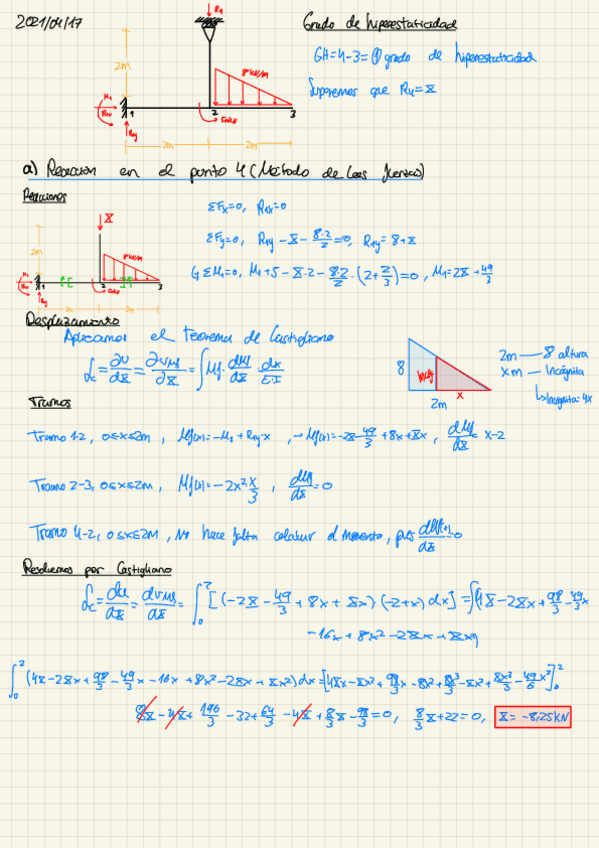 2021/04/17
Grado de hiperestaticidad
R4
GH=4-3=① grado de hiperestaticidad
2m
8kN/m
Suponemos que R4=X
M1
R1x
1
2
3
5kNm
R1y
2m
2m
a) Reacción en el punto 4 (Método de las fuerzas)
Reacciones
X
ΣFx=0, R1x=0
2m
8kN/m
ΣFy=0, R1y-X-8·2/2=0, R1y=8+X
ΣM1=0, M1+5-X·2-8·2/2·(2+2/3)=0, M1=2X+49/3
M1
1
2
3
R1y
2m
2m
Desplazamiento
Aplicamos el Teorema de Castigliano
δc=∂U/∂X=∂UMf/∂X=∫Mf·dMf/dX dx/EI
8
Incóg
x
2m
2m — 8 altura
x m — Incógnita
↳Incógnita=4x
Tramos
Tramo 1-2, 0≤x≤2m, Mf(x)=-M1+R1y·x, →Mf(x)=-2X-49/3+8x+Xx, dMf/dX=x-2
Tramo 2-3, 0≤x≤2m, Mf(x)=-2x²x/3, dMf/dX=0
Tramo 4-2, 0≤x≤2m, No hace falta calcular el momento, pues dMf(x)/dX=0
Resolvemos por Castigliano
δc=du/dX=dUMf/dX=∫₀²[(-2X-49/3+8x+Xx)(-2+x)dx]=∫(4X-2Xx+98/3-49/3x
-16x+8x²-2Xx+Xx²)
∫₀²(4X-2Xx+98/3-49/3x-16x+8x²-2Xx+Xx²)dx=[4Xx-Xx²+98/3x-8x²+8x³/3-Xx²+Xx³/3-49/6x²]₀²
8X-4X+196/3-32+64/3-4X+8/3X-98/3=0, 8/3X+22=0, X=-8,25kN